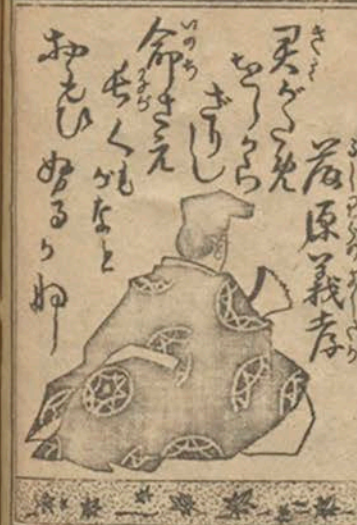 藤原義孝
きみ
君がため
をしから
ざりし
いのち
命さえ
なが
長くも
がなと
おもひぬるかな